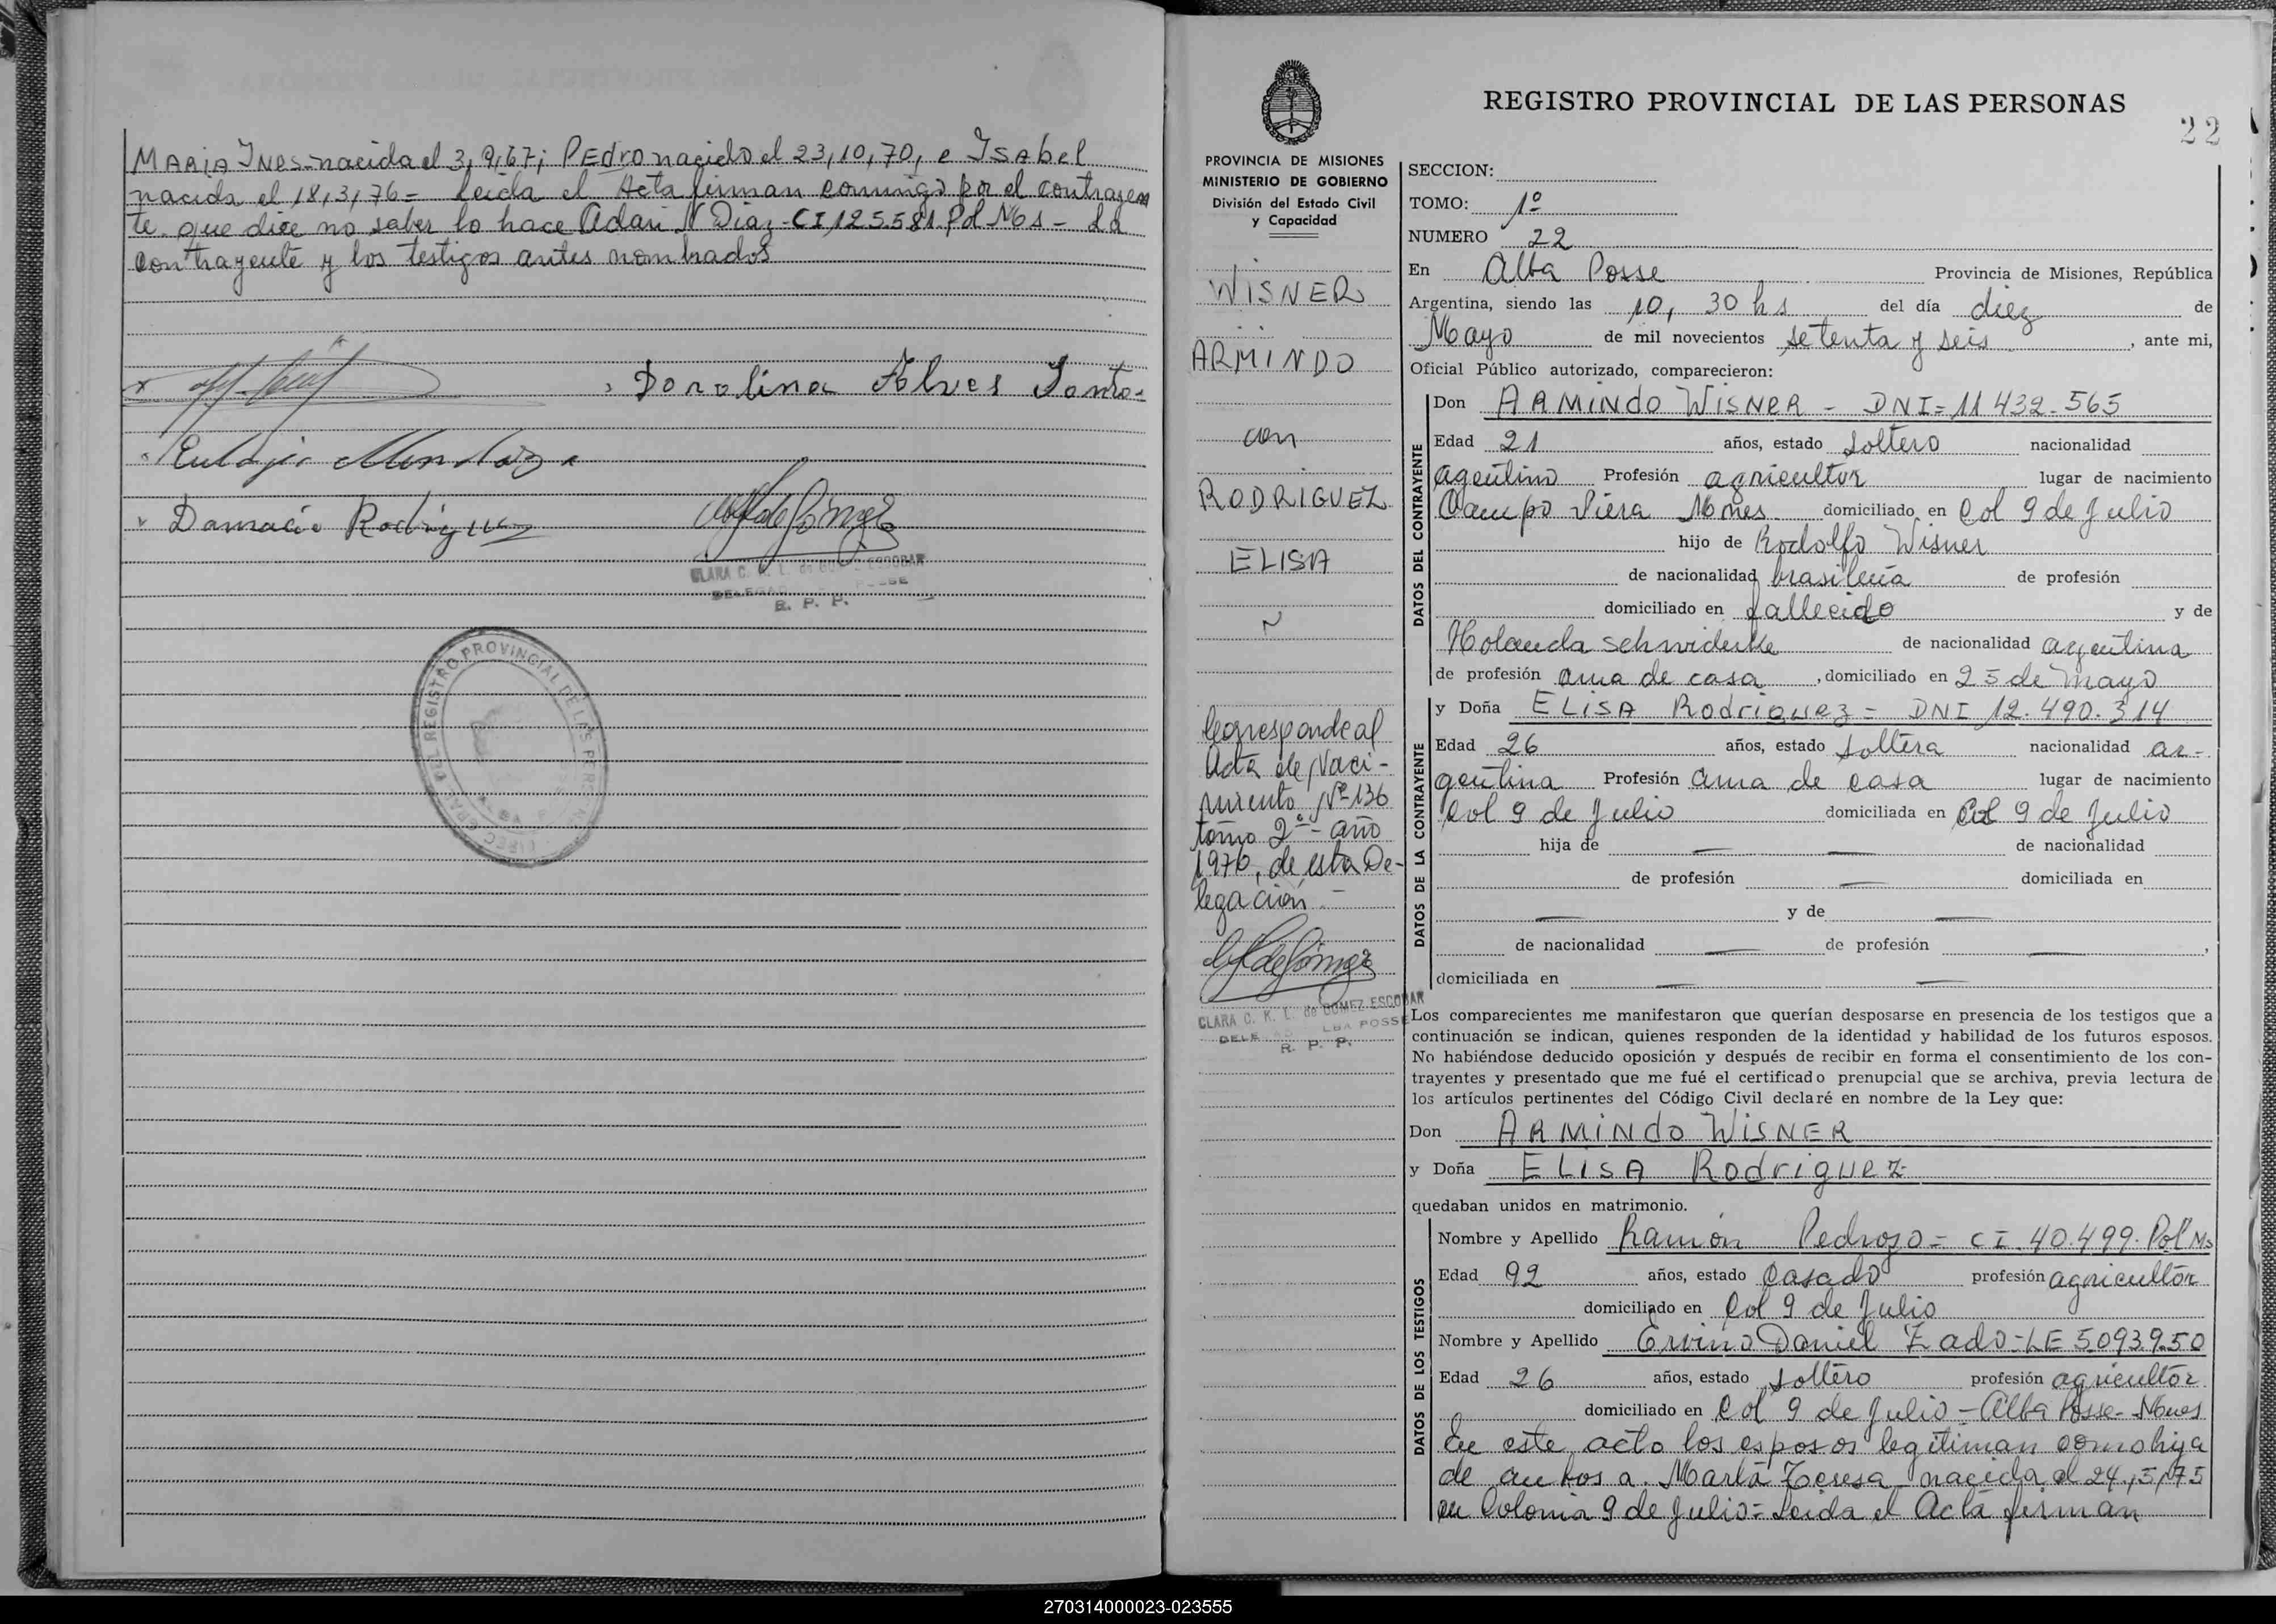 MARIA INES nacida el 3,9,67; PEdro nacido el 23,10,70, e ISAbel
nacida el 18,3,76= Leida el Acta firman conmigo por el contrayen
te que dice no saber lo hace Adan N Diaz-CI,125.581.Pol Mes - La
contrayente y los testigos antes nombrados
Dorolina Alves Santo
Eulojio Mendoza
Damacio Rodriguez
CLARA C. K. L. de GOMEZ ESCOBAR
R. P. P.
REGISTRO PROVINCIAL DE LAS PERSONAS
22
PROVINCIA DE MISIONES
MINISTERIO DE GOBIERNO
División del Estado Civil
y Capacidad
WISNER
ARMINDO
con
RODRIGUEZ
ELISA
Corresponde al
Acta de Naci-
miento Nº 136
tomo 2º - año
1976, de esta De-
legación.-
CLARA C. K. L. de GOMEZ ESCOBAR
R. P. P.
SECCION:
TOMO: 1º
NUMERO 22
En Alba Posse Provincia de Misiones, República
Argentina, siendo las 10, 30 hs del día diez de
Mayo de mil novecientos setenta y seis, ante mi,
Oficial Público autorizado, comparecieron:
DATOS DEL CONTRAYENTE
Don ARMINdo WISNER - DNI=11 432.565
Edad 21 años, estado soltero nacionalidad
agentino Profesión agricultor lugar de nacimiento
Campo Viera Mones domiciliado en Col 9 de Julio
hijo de Rodolfo Wisner
de nacionalidad brasileña de profesión
domiciliado en fallecido y de
Holanda de nacionalidad argentina
de profesión ama de casa, domiciliado en 25 de Mayo
DATOS DE LA CONTRAYENTE
y Doña ELISA Rodriguez= DNI 12.490.314
Edad 26 años, estado soltera nacionalidad ar-
gentina Profesión ama de casa lugar de nacimiento
Col 9 de Julio domiciliado en Col 9 de Julio
hija de — — de nacionalidad
de profesión — domiciliada en
— y de —
de nacionalidad — de profesión —,
domiciliada en — —
Los comparecientes me manifestaron que querían desposarse en presencia de los testigos que a
continuación se indican, quienes responden de la identidad y habilidad de los futuros esposos.
No habiéndose deducido oposición y después de recibir en forma el consentimiento de los con-
trayentes y presentado que me fué el certificado prenupcial que se archiva, previa lectura de
los artículos pertinentes del Código Civil declaré en nombre de la Ley que:
Don ARMINdo WISNER
y Doña ELISA Rodriguez
quedaban unidos en matrimonio.
DATOS DE LOS TESTIGOS
Nombre y Apellido Ramón Pedrozo= CI.40.499.Pol Ms
Edad 92 años, estado Casado profesión agricultor
domiciliado en Col 9 de Julio
Nombre y Apellido Ervino Daniel Zado-LE 5.093.950
Edad 26 años, estado soltero profesión agricultor
domiciliado en Col 9 de Julio-Alba Posse-Mnes
En este acto los esposos legitiman como hija
de ambos a Marta Teresa nacida el 24,5,75
en Colonia 9 de Julio= Leida el Acta firman
270314000023-023555